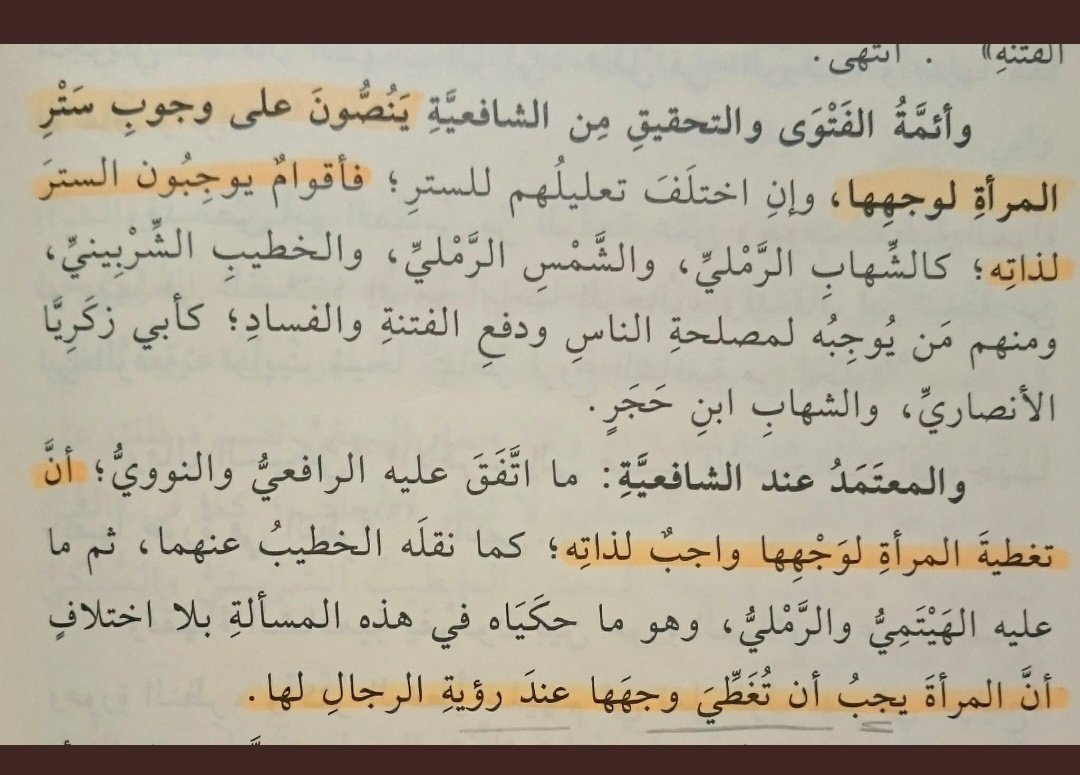 الفتنةِ» . انتهى.
وأئمَّةُ الفَتْوَى والتحقيقِ مِن الشافعيَّةِ يَنُصُّونَ على وجوبِ سَتْرِ
المرأةِ لوجهِها، وإنِ اختلَفَ تعليلُهم للسترِ؛ فأقوامٌ يوجِبُون السترَ
لذاتِه؛ كالشِّهابِ الرَّمْليِّ، والشَّمْسِ الرَّمْليِّ، والخطيبِ الشِّرْبِينيِّ،
ومنهم مَن يُوجِبُه لمصلحةِ الناسِ ودفعِ الفتنةِ والفسادِ؛ كأبي زكَرِيَّا
الأنصاريِّ، والشهابِ ابنِ حَجَرٍ.
والمعتَمَدُ عند الشافعيَّةِ: ما اتَّفَقَ عليه الرافعيُّ والنوويُّ؛ أنَّ
تغطيةَ المرأةِ لوَجْهِها واجبٌ لذاتِه؛ كما نقلَه الخطيبُ عنهما، ثم ما
عليه الهَيْتَمِيُّ والرَّمْليُّ، وهو ما حكَيَاه في هذه المسألةِ بلا اختلافٍ
أنَّ المرأةَ يجبُ أن تُغَطِّيَ وجهَها عندَ رؤيةِ الرجالِ لها.